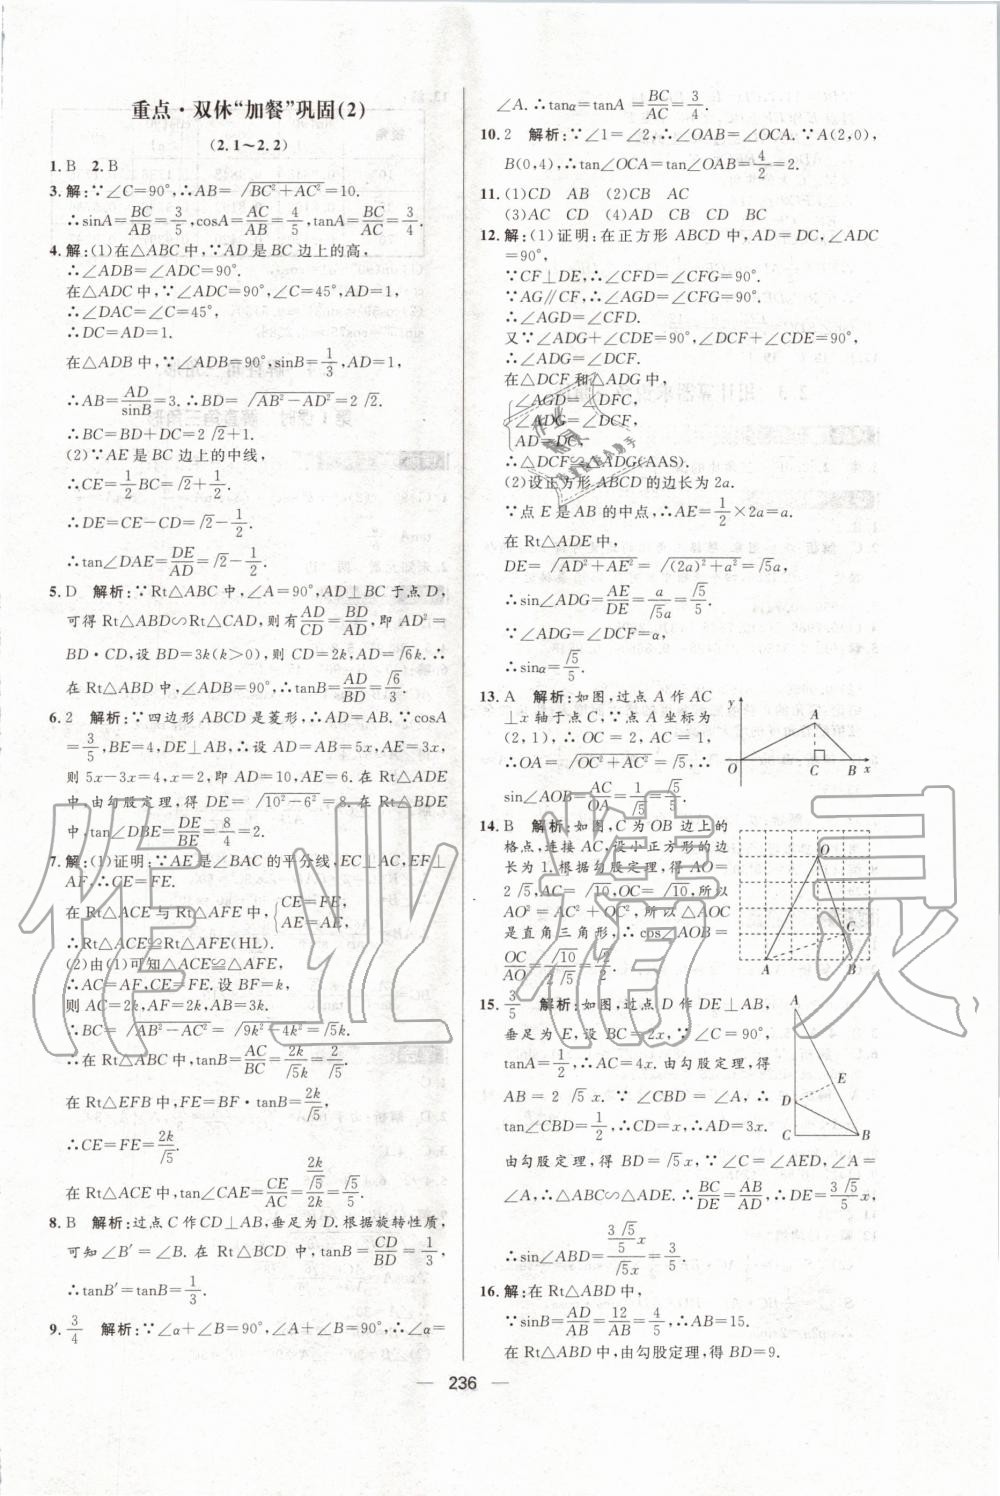 重点·双休“加餐”巩固(2)
(2.1～2.2)
1. B  2. B
3. 解:∵∠C=90°,∴AB=√(BC²+AC²)=10.
∴sinA=BC/AB=3/5,cosA=AC/AB=4/5,tanA=BC/AC=3/4.
4. 解:(1)在△ABC中,∵AD是BC边上的高,
∴∠ADB=∠ADC=90°.
在△ADC中,∵∠ADC=90°,∠C=45°,AD=1,
∴∠DAC=∠C=45°.
∴DC=AD=1.
在△ADB中,∵∠ADB=90°,sinB=1/3,AD=1,
∴AB=AD/sinB=3.∴BD=√(AB²-AD²)=2√2.
∴BC=BD+DC=2√2+1.
(2)∵AE是BC边上的中线,
∴CE=1/2BC=√2+1/2.
∴DE=CE-CD=√2-1/2.
∴tan∠DAE=DE/AD=√2-1/2.
5. D  解析:∵Rt△ABC中,∠A=90°,AD⊥BC于点D,
可得Rt△ABD∽Rt△CAD,则有AD/CD=BD/AD,即AD²=
BD·CD,设BD=3k(k>0),则CD=2k,AD=√6k.∴
在Rt△ABD中,∠ADB=90°,∴tanB=AD/BD=√6/3.
6. 2  解析:∵四边形ABCD是菱形,∴AD=AB.∵cosA
=3/5,BE=4,DE⊥AB,∴设AD=AB=5x,AE=3x,
则5x-3x=4,x=2,即AD=10,AE=6.在Rt△ADE
中,由勾股定理,得DE=√(10²-6²)=8.在Rt△BDE
中,tan∠DBE=DE/BE=8/4=2.
7. 解:(1)证明:∵AE是∠BAC的平分线,EC⊥AC,EF⊥
AF,∴CE=FE.
在Rt△ACE与Rt△AFE中,{CE=FE, AE=AE,
∴Rt△ACE≌Rt△AFE(HL).
(2)由(1)可知△ACE≌△AFE,
∴AC=AF,CE=FE.设BF=k,
则AC=2k,AF=2k,AB=3k.
∴BC=√(AB²-AC²)=√(9k²-4k²)=√5k.
∴在Rt△ABC中,tanB=AC/BC=2k/√5k=2/√5.
在Rt△EFB中,FE=BF·tanB=2k/√5,
∴CE=FE=2k/√5.
在Rt△ACE中,tan∠CAE=CE/AC=(2k/√5)/2k=√5/5.
8. B  解析:过点C作CD⊥AB,垂足为D.根据旋转性质,
可知∠B′=∠B.在Rt△BCD中,tanB=CD/BD=1/3,
∴tanB′=tanB=1/3.
9. 3/4  解析:∵∠α+∠B=90°,∠A+∠B=90°,∴∠α=
∠A.∴tanα=tanA=BC/AC=3/4.
10. 2  解析:∵∠1=∠2,∴∠OAB=∠OCA.∵A(2,0),
B(0,4),∴tan∠OCA=tan∠OAB=4/2=2.
11. (1)CD  AB  (2)CB  AC
(3)AC  CD  (4)AD  CB  CD  BC
12. 解:(1)证明:在正方形ABCD中,AD=DC,∠ADC
=90°.
∵CF⊥DE,∴∠CFD=∠CFG=90°.
∵AG∥CF,∴∠AGD=∠CFG=90°.
∴∠AGD=∠CFD.
又∵∠ADG+∠CDE=90°,∠DCF+∠CDE=90°,
∴∠ADG=∠DCF.
在△DCF和△ADG中,
∠AGD=∠DFC,
∠ADG=∠DCF,
AD=DC,
∴△DCF≌△ADG(AAS).
(2)设正方形ABCD的边长为2a.
∵点E是AB的中点,∴AE=1/2×2a=a.
在Rt△ADE中,
DE=√(AD²+AE²)=√((2a)²+a²)=√5a,
∴sin∠ADG=AE/DE=a/√5a=√5/5.
∵∠ADG=∠DCF=α,
∴sinα=√5/5.
13. A  解析:如图,过点A作AC
⊥x轴于点C,∵点A坐标为
(2,1),∴OC=2,AC=1,
∴OA=√(OC²+AC²)=√5,∴
sin∠AOB=AC/OA=1/√5=√5/5.
y
A
O
C
B
x
14. B  解析:如图,C为OB边上的
格点,连接AC,设小正方形的边
长为1.根据勾股定理,得AO=
2√5,AC=√10,OC=√10,所以
AO²=AC²+OC²,所以△AOC
是直角三角形,∴cos∠AOB=
OC/AO=√10/2√5=√2/2.
O
C
A
B
15. 3/5  解析:如图,过点D作DE⊥AB,
垂足为E,设BC=2x,∵∠C=90°,
tanA=1/2,∴AC=4x.由勾股定理,得
AB=2√5x.∵∠CBD=∠A,∴
tan∠CBD=1/2,∴CD=x,∴AD=3x.
由勾股定理,得BD=√5x,∵∠C=∠AED,∠A=
∠A,∴△ABC∽△ADE.∴BC/DE=AB/AD,∴DE=3√5/5x,
∴sin∠ABD=(3√5/5x)/√5x=3/5.
A
E
D
C
B
16. 解:在Rt△ABD中,
∵sinB=AD/AB=12/AB=4/5,∴AB=15.
在Rt△ABD中,由勾股定理,得BD=9.
236
作业精灵